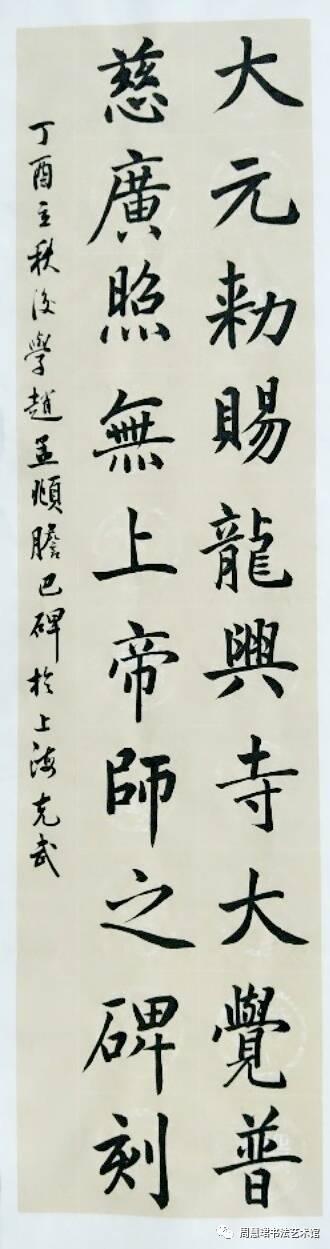 大元勅賜龍興寺大覺普
慈廣照無上帝師之碑刻
丁酉立秋後學趙孟頫膽巴碑於上海克武
周慧珺书法艺术馆